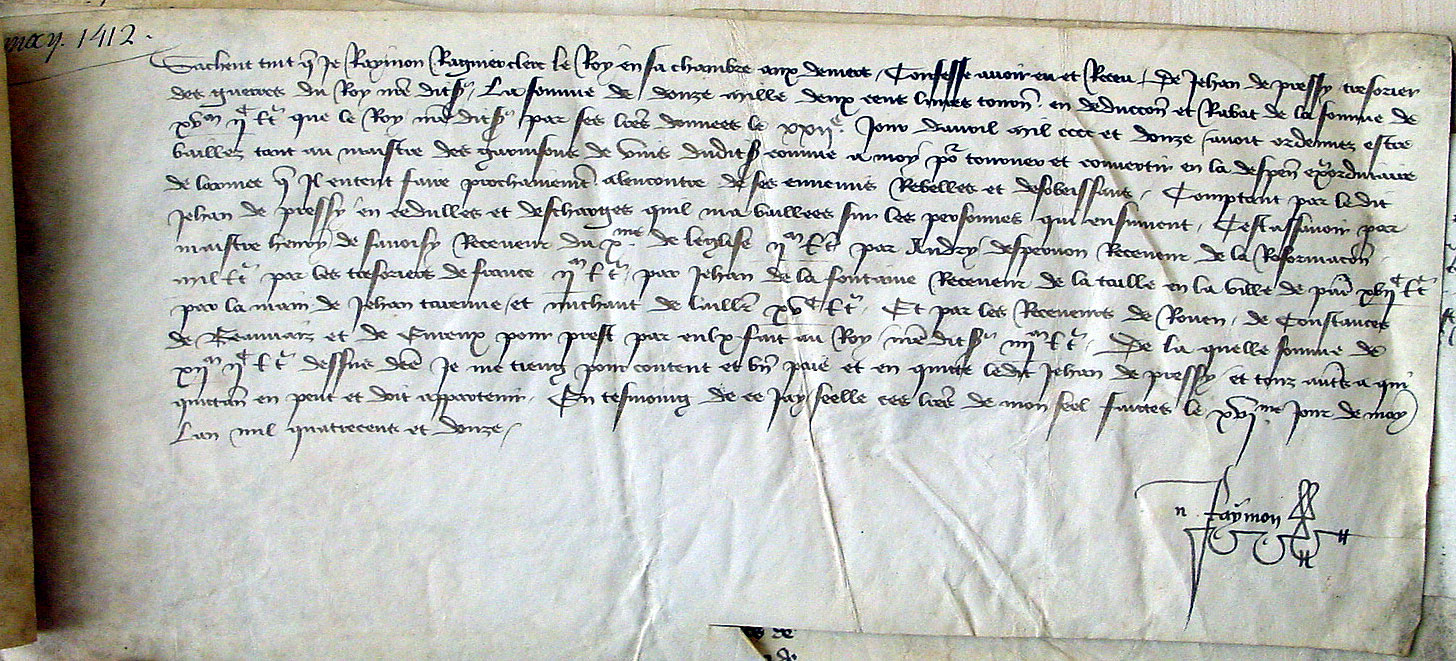 may. 1412.
Sachent tuit q̃ Je Raymon Raguier clerc le Roy en sa chambre aux deniers / Confesse avoir eu et Receu / De Jehan de pressy tresorier
des guerres du Roy nr̃e dit sr / La somme de douze mille deux cens livres tourn̄ en deduccōn et Rabat de la somme de
xvm IIc l t̃ que le Roy nr̃e dit sr par ses lr̃es donnees le xxIIe Jour davril mil cccc et douze / avoit ordennez estre
bailliez tant au maistre des garnisons de vins dudit sr comme a moy po tourner et convertir en la despen̄ ex̃ordinaire
de larmee q̃ Il entent faire prochainemt̃ alencontre de ses ennemis Rebelles et desobeissans / Comptant par ledit
Jehan de pressy en cedulles et descharges quil ma baillees sur les personnes qui ensuivent / Cest assavoir par
maistre henry de savoisy Receveur du xme de leglise IIm l t̃ par Andry desprouon Receveur de la Reformacōn
mil l t̃ par les tresoriers de france IIm l t̃ / par Jehan de la fontaine Receveur de la taille en la ville de par̄ xvIIc l t̃
par la main de Jehan tarenne / et michaut de laillr̃ xvc l t̃ / Et par les Receveurs de Rouen / de Constances
de Beauvaiz et de Evreux pour prest par eulx fait au Roy nr̃e dit sr IIIIm l t̃ / De la quelle somme de
xIIm IIc l t̃ dessus dc̃e Je me tieng pour content et bn̄ paié et en quitte ledit Jehan de pressy et touz autr̃s a qui
quittan̄ en puet et doit appartenir / En tesmoing de ce Jay seelle ces lr̃es de mon seel faictes le xvIme Jour de may
Lan mil quatrecens et douze /
Raymon